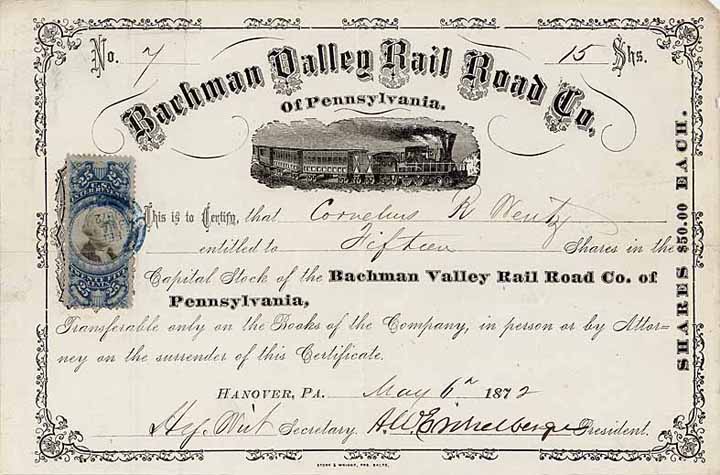 No. 7 15 Shs.
Bachman Valley Rail Road Co.
Of Pennsylvania.
25 25
U.S. INTER
This is to Certify, that Cornelius R Wentz
entitled to Fifteen Shares in the
Capital Stock of the Bachman Valley Rail Road Co. of
Pennsylvania,
Transferable only on the Books of the Company, in person or by Attor=
ney on the surrender of this Certificate.
HANOVER, PA. May 6th 1872
Hy. Wirt Secretary. President.
SHARES $50.00 EACH.